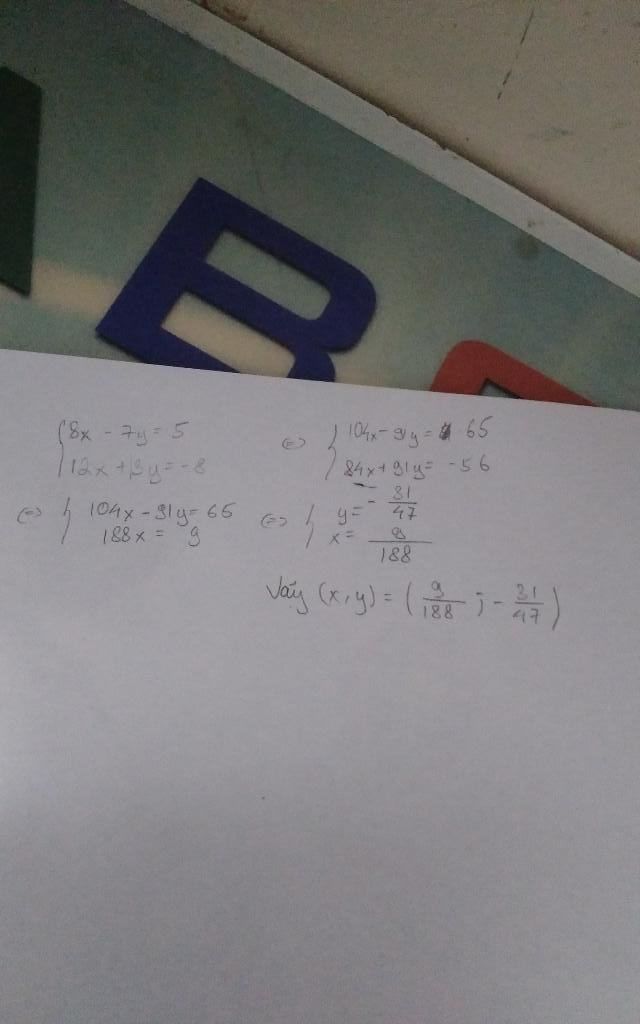 B
{8x - 7y = 5
12x + 13y = -8
<=> {104x - 91y = 65
84x + 91y = -56
<=> {104x - 91y = 65
188x = 9
<=> {y = - 31/47
x = 9/188
Vậy (x, y) = (9/188 ; - 31/47)